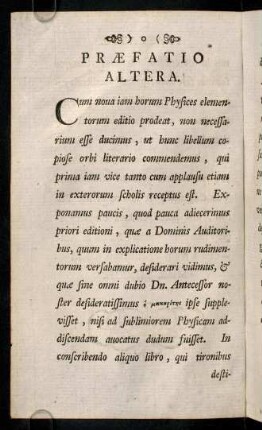 PRÆFATIO
ALTERA.
Cum noua iam horum Physices elemen-
torum editio prodeat, non necessa-
rium esse ducimus, ut hunc libellum co-
piose orbi literario commendemus, qui
prima iam vice tanto cum applausu etiam
in exterorum scholis receptus est. Ex-
ponamus paucis, quod pauca adiecerimus
priori editioni, quæ a Dominis Auditori-
bus, quum in explicatione horum rudimen-
torum versabamur, desiderari vidimus, &
quæ sine omni dubio Dn. Antecessor no-
ster desideratissimus ὁ μακαρίτης ipse supple-
visset, nisi ad sublimiorem Physicam ad-
discendam auocatus dudum fuisset. In
conscribendo aliquo libro, qui tironibus
desti-